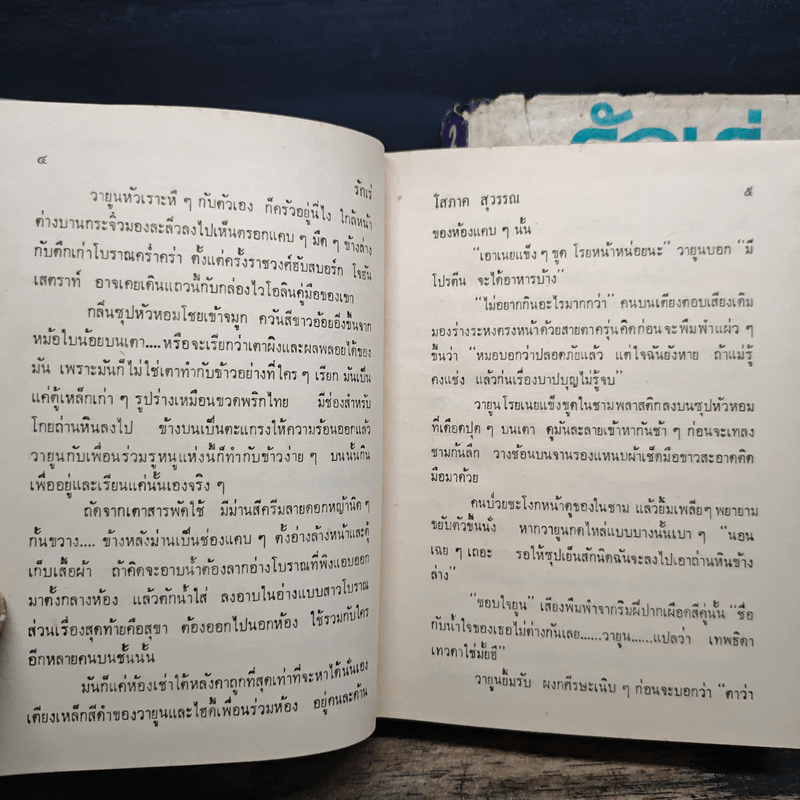 ๔
รักเร่
วายูนหัวเราะหึ ๆ กับตัวเอง ก็ครัวอยู่นี่ไง ใกล้หน้า
ต่างบานกระจิ๋วมองละลิ่วลงไปเห็นตรอกแคบ ๆ มืด ๆ ข้างล่าง
กับตึกเก่าโบราณคร่ำคร่า ตั้งแต่ครั้งราชวงศ์ฮับสบอร์ก โจฮัน
เสตราท์ อาจเคยเดินแถวนี้กับกล่องไวโอลินคู่มือของเขา
กลิ่นซุปหัวหอมโชยเข้าจมูก ควันสีขาวอ้อยอิ่งขึ้นจาก
หม้อใบน้อยบนเตา....หรือจะเรียกว่าเตาผิงและผลพลอยได้ของ
มัน เพราะมันก็ไม่ใช่เตาทำกับข้าวอย่างที่ใคร ๆ เรียก มันเป็น
แค่ตู้เหล็กเก่า ๆ รูปร่างเหมือนขวดพริกไทย มีช่องสำหรับ
โกยถ่านหินลงไป ข้างบนเป็นตะแกรงให้ความร้อนออกแล้ว
วายูนกับเพื่อนร่วมรูหนูแห่งนี้ก็ทำกับข้าวง่าย ๆ บนนั้นกิน
เพื่ออยู่และเรียนแค่นั้นเองจริง ๆ
ถัดจากเตาสารพัดใช้ มีม่านสีครีมลายดอกหญ้านิด ๆ
กั้นขวาง.... ข้างหลังม่านเป็นช่องแคบ ๆ ตั้งอ่างล้างหน้าและตู้
เก็บเสื้อผ้า ถ้าคิดจะอาบน้ำต้องลากอ่างโบราณที่พิงแอบออก
มาตั้งกลางห้อง แล้วตักน้ำใส่ ลงอาบในอ่างแบบสาวโบราณ
ส่วนเรื่องสุดท้ายคือสุขา ต้องออกไปนอกห้อง ใช้รวมกับใคร
อีกหลายคนบนชั้นนั้น
มันก็แค่ห้องเช่าใต้หลังคาถูกที่สุดเท่าที่จะหาได้นั่นเอง
เตียงเหล็กสีดำของวายูนและไฮดี้เพื่อนร่วมห้อง อยู่คนละด้าน
โสภาค สุวรรณ
๕
ของห้องแคบ ๆ นั้น
"เอาเนยแข็ง ๆ ขูด โรยหน้าหน่อยนะ" วายูนบอก "มี
โปรตีน จะได้อาหารบ้าง"
"ไม่อยากกินอะไรมากกว่า" คนบนเตียงตอบเสียงเดิม
มองร่างระหงตรงหน้าด้วยสายตาครุ่นคิดก่อนจะพึมพำแผ่ว ๆ
ขึ้นว่า "หมอบอกว่าปลอดภัยแล้ว แต่ใจฉันยังหาย ถ้าแม่รู้
คงแช่ง แล้วก่นเรื่องบาปบุญไม่รู้จบ"
วายูนโรยเนยแข็งขูดในชามพลาสติกลงบนซุปหัวหอม
ที่เดือดปุด ๆ บนเตา ดูมันละลายเข้าหากันช้า ๆ ก่อนจะเทลง
ชามก้นลึก วางช้อนบนจานรองแหนบผ้าเช็ดมือขาวสะอาดติด
มือมาด้วย
คนป่วยชะโงกหน้าดูของในชาม แล้วยิ้มเพลีย ๆ พยายาม
ขยับตัวขึ้นนั่ง หากวายูนกดไหล่แบบบางนั้นเบา ๆ "นอน
เฉย ๆ เถอะ รอให้ซุปเย็นสักนิดฉันจะลงไปเอาถ่านหินข้าง
ล่าง"
"ขอบใจยูน" เสียงพึมพำจากริมฝีปากเผือดสีคู่นั้น "ชื่อ
กับน้ำใจของเธอไม่ต่างกันเลย......วายูน......แปลว่า เทพธิดา
เทวดาใช่มั้ยฮึ"
วายูนยิ้มรับ ผงกศีรษะเนิบ ๆ ก่อนจะบอกว่า "ตาว่า
รักเร่